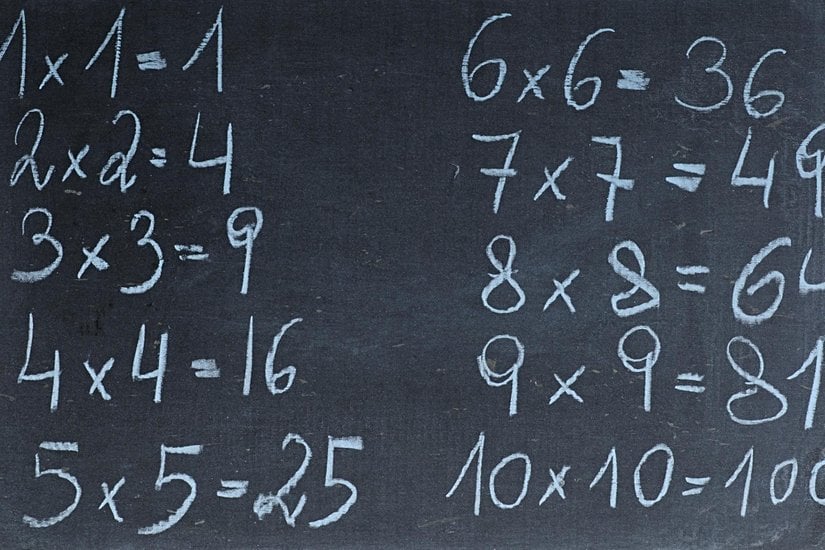 1×1=1
2×2=4
3×3=9
4×4=16
5×5=25
6×6=36
7×7=49
8×8=64
9×9=81
10×10=100